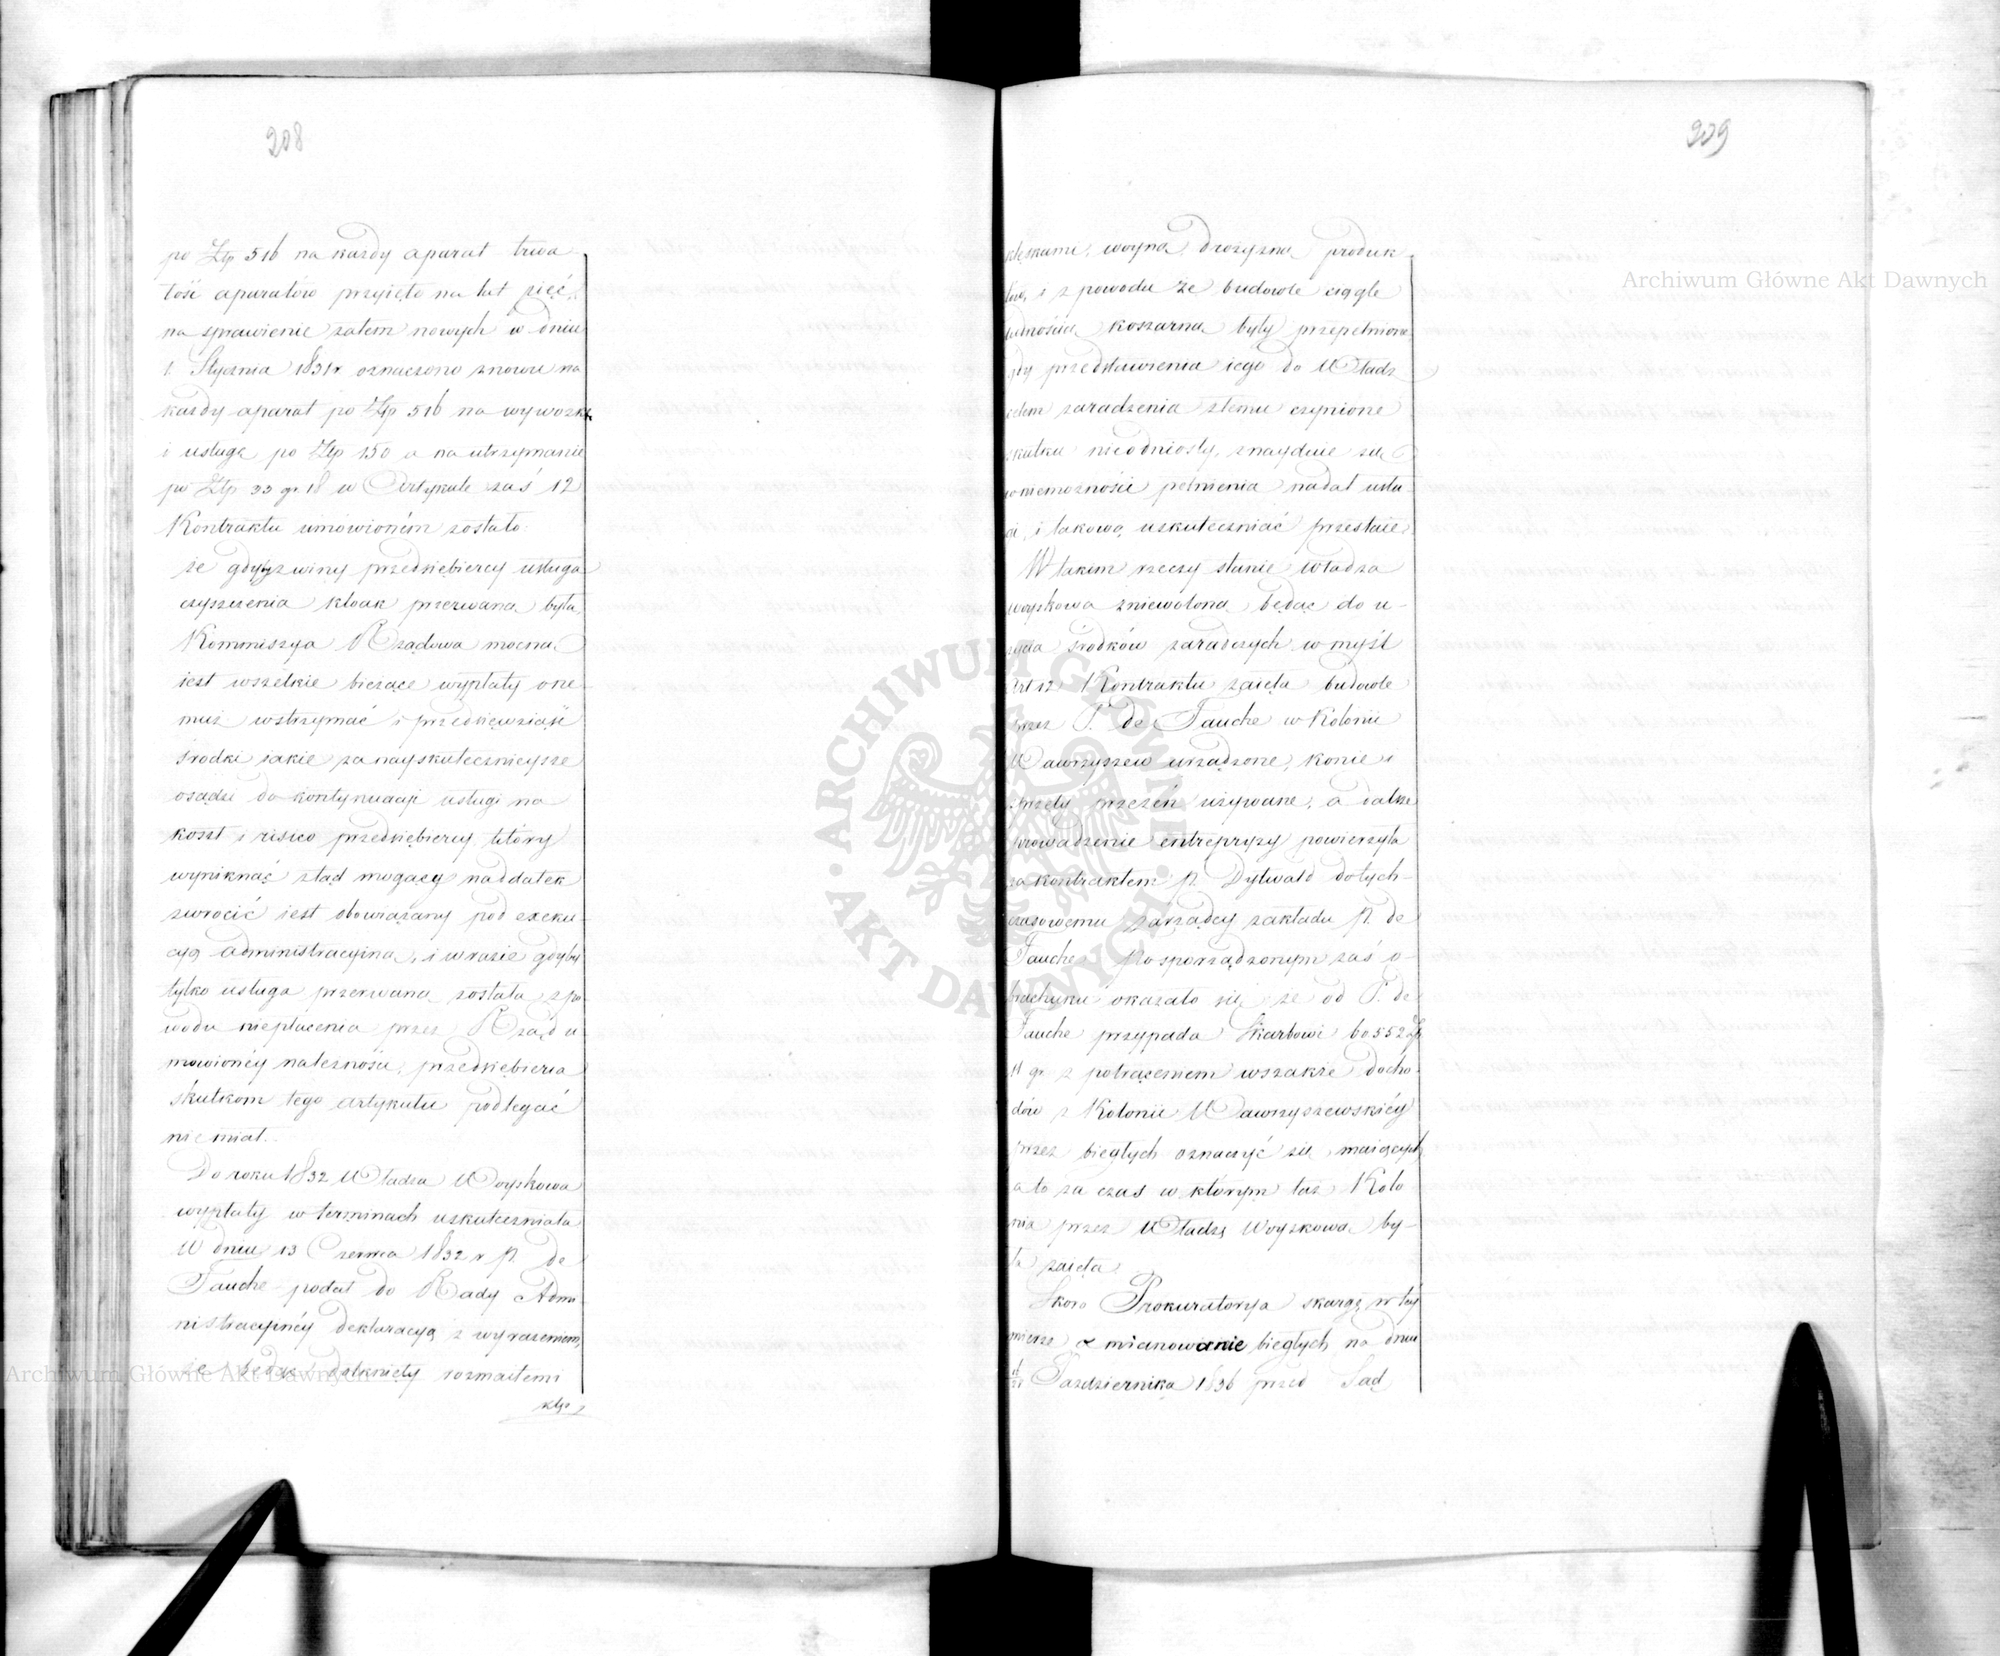 208
po Złp 516 na każdy aparat trwa-
łość aparatów przyięto na lat pięć,
na sprawienie zatem nowych w dniu
1 Stycznia 1831 r oznaczono znowu na
każdy aparat po Złp 516 na wywózkę
i usługę po Złp 150 a na utrzymanie
po Złp 33 gr 18 w Artykule zaś 12
Kontraktu umówioném zostało:
że gdyby z winy przedsiębiercy usługa
czyszczenia kloak przerwana była,
Kommissya Rządowa mocna
iest wszelkie bieżące wypłaty one-
muż wstrzymać i przedsięwziąść
środki iakie za nayskutecznieysze
osądzi do kontynuacji usługi na
koszt i risico przedsiębiercy który
wyniknąć ztąd mogący naddatek
zwrócić iest obowiązany pod exeku-
cyą administracyiną, i w razie gdyby
tylko usługa przerwana została z po-
wodu niepłacenia przez Rząd u-
mówionéy należności, przedsiębierca
skutkom tego artykułu podlegać
nie miał.
Do roku 1832 Władza Woyskowa
wypłaty w terminach uskuteczniała
W dniu 13 Czerwca 1832 r P. de
Tauche podał do Rady Admi-
nistracyinéy deklaracyą z wyrażeniem,
że będąc dotknięty rozmaitemi
klęs
209
klęskami, woyną, drożyzną produk-
tów, i z powodu że budowle ciągle
ludnością koszarną były przepełnione
gdy przedstawienia iego do Władz
celem zaradzenia złemu czynione
skutku nieodniosły, znayduie się
w niemożności pełnienia nadal usłu-
gi, i takową uskuteczniać przestaie.
W takim rzeczy stanie władza
woyskowa zniewoloną będąc do u-
życia środków zaradczych w myśl
Art 12 Kontraktu zaięła budowle
przez P. de Tauche w Kolonii
Wawrzyszew urządzone, konie i
sprzęty przezeń używane, a dalsze
prowadzenie entrepryzy powierzyła
za kontraktem P. Dytwald dotych-
czasowemu zarządcy zakładu P. de
Tauche. Po sporządzonym zaś o-
brachunku okazało się że od P. de
Tauche przypada Skarbowi 60552 Złp
11 gr. z potrąceniem wszakże docho-
dów z Kolonii Wawrzyszewskiéy
przez biegłych oznaczyć się maiących
a to za czas w którym taż Kolo
nia przez Władzę Woyskową by-
ła zaięta.
Skoro Prokuratorya skargę w téy
mierze o mianowanie biegłych na dniu
Października 1836 przed Sąd
Archiwum Główne Akt Dawnych
Archiwum Główne Akt Dawnych
ARCHIWUM GŁÓWNE AKT DAWNYCH